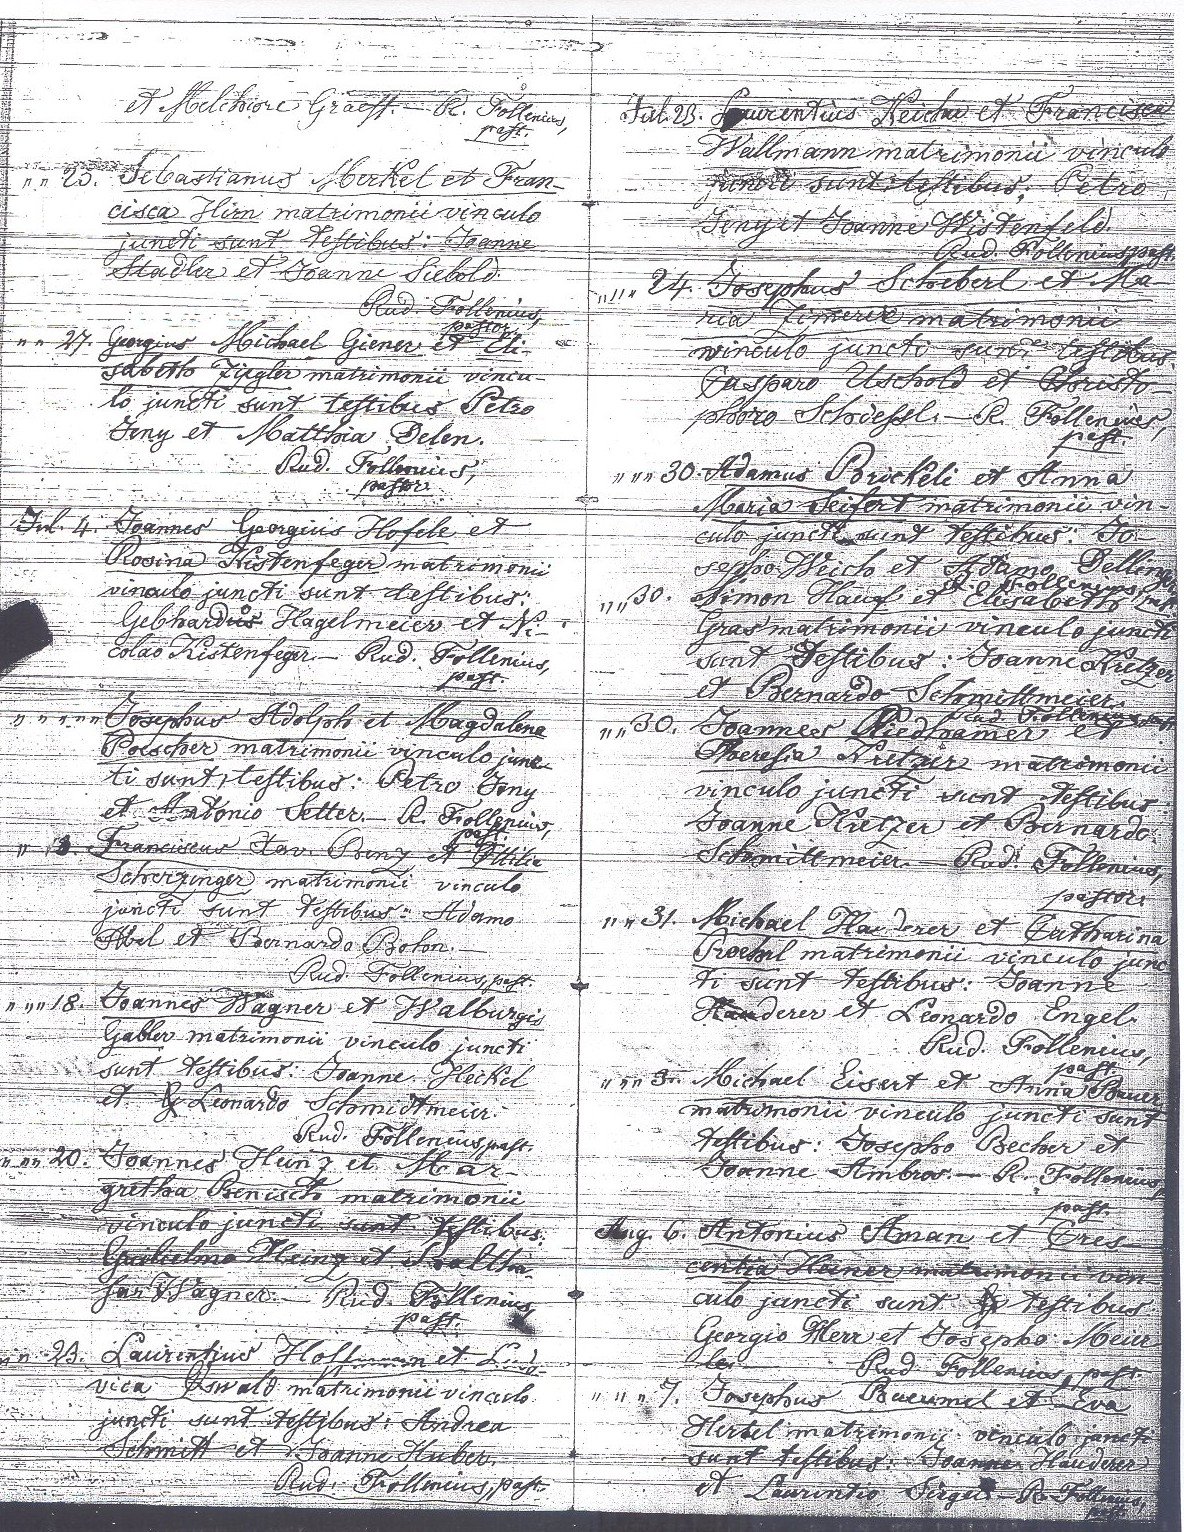 et Melchiore Graeff. — R. Follenius,
past.
" " 23. Sebastianus Merkel et Fran-
cisca Hirn matrimonii vinculo
juncti sunt testibus: Joanne
Stadler et Joanne Siebold.
Rud. Follenius,
pastor.
" " 27. Georgius Michael Giener et Eli-
sabetha Ziegler matrimonii vincu-
lo juncti sunt testibus Petro
Jeny et Matthia Delen.
Rud. Follenius,
pastor.
Jul. 4. Joannes Georgius Hofele et
Rosina Kistenfeger matrimonii
vinculo juncti sunt testibus:
Gebhardo Hagelmeier et Ni-
colao Kistenfeger. — Rud. Follenius,
past.
" " " " " Josephus Adolph et Magdalena
Poescher matrimonii vinculo junc-
ti sunt testibus: Petro Jeny
et Antonio Setter. — R. Follenius,
past.
" Franciscus Xav. Benz et Ottilia
Scherzinger matrimonii vinculo
juncti sunt testibus: Adamo
Abel et Bernardo Bohn. —
Rud. Follenius, past.
" " " 18. Joannes Wagner et Walburgis
Gabler matrimonii vinculo juncti
sunt testibus: Joanne Heckel
et Leonardo Schmidtmeier.
Rud. Follenius, past.
" " " 20. Joannes Heinz et Mar-
gretha Benisch matrimonii
vinculo juncti sunt testibus:
Guilielmo Heinz et Baltha-
sar Wagner. — Rud. Follenius,
past.
" " 23. Laurentius Hoffmann et Ludo-
vica Oswald matrimonii vinculo
juncti sunt testibus: Andrea
Schmitt et Joanne Huber.
Rud. Follenius, past.
Jul. 23. Laurentius Reicha et Francisca
Wallmann matrimonii vinculo
juncti sunt testibus: Petro
Jeny et Joanne Wistenfeld.
Rud. Follenius, past.
" " " 24. Josephus Schoberl et Ma-
ria matrimonii
vinculo juncti sunt testibus
Casparo Uschold et Christo-
phoro Schiessl. — R. Follenius,
past.
" " " 30. Adamus Brickeli et Anna
Maria Seifert matrimonii vin-
culo juncti sunt testibus: Jo-
sepho Weich et Adamo
R. Follenius, past.
" " 30. Simon Hauf et Elisabeth
Gras matrimonii vinculo juncti
sunt testibus: Joanne Kretzer
et Bernardo Schmittmeier.
Rud. Follenius, past.
" " 30. Joannes Riedhamer et
Theresia Kretzer matrimonii
vinculo juncti sunt testibus
Joanne Kretzer et Bernardo
Schmittmeier. Rud. Follenius,
pastor.
" " 31. Michael Hauderer et Catharina
Proehl matrimonii vinculo junc-
ti sunt testibus: Joanne
Hauderer et Leonardo Engel.
Rud. Follenius,
past.
" " " 31. Michael Eisert et Anna Bauer
matrimonii vinculo juncti sunt
testibus: Josepho Becher et
Joanne Ambros. — R. Follenius,
past.
Aug. 6. Antonius Aman et Cres-
centia Heiner matrimonii vin-
culo juncti sunt testibus
Georgio Herr et Josepho Meur
Rud. Follenius, past.
" " " 7. Josephus Baeumel et Eva
Hertel matrimonii vinculo juncti
sunt testibus: Joanne Hauderer
et Laurentio — R. Follenius,
past.